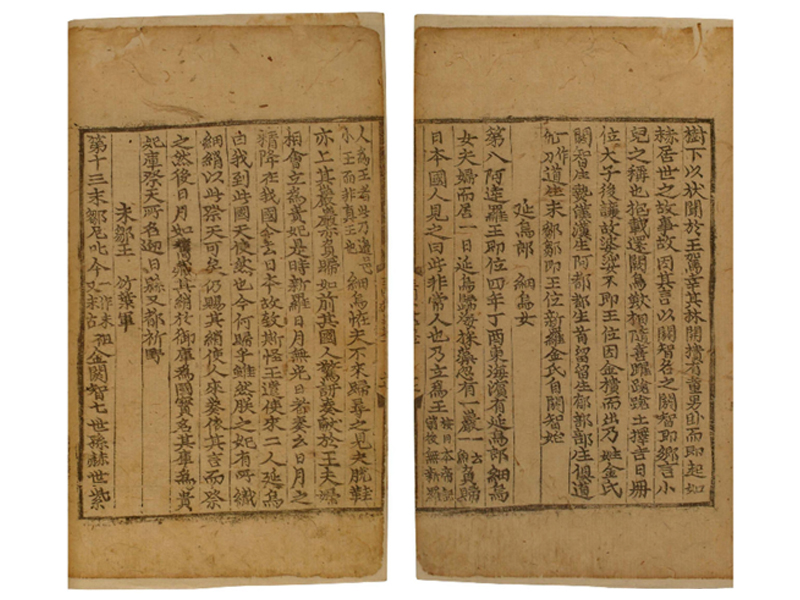 樹下以狀聞於王駕幸其林開樻有童男卧而即起如
赫居世之故事故因其言以閼智名之閼智即鄕言小
兒之稱也抱載還闕鳥獸相隨喜躍蹌蹌土擇吉日冊
位大子後讓故婆娑不即王位因金樻而出乃姓金氏
閼智生熱漢漢生阿都都生首留留生郁部部生俱道
一作仇刀道生末鄒鄒即王位新羅金氏自閼智始
延烏郎 細烏女
第八阿達羅王即位四年丁酉東海濱有延烏郎細烏
女夫婦而居一日延烏歸海採藻忽有一巖一云一魚負歸
日本國人見之曰此非常人也乃立爲王按日本帝記前後無新羅
人爲王者此乃邊邑小王而非真王也細烏恠夫不來歸尋之見夫脫鞋
亦上其巖巖亦負歸如前其國人驚訝奏獻於王夫婦
相會立爲貴妃是時新羅日月無光日者奏云日月之
精降在我國今去日本故致斯怪王遣使來二人延烏
曰我到此國天使然也今何歸乎雖然朕之妃有所織
細綃以此祭天可矣仍賜其綃使人來奏依其言而祭
之然後日月如舊藏其綃於御庫爲國寶名其庫爲貴
妃庫祭天所名迎日縣又都祈野
未鄒王 竹葉軍
第十三未鄒尼叱今一作未祖又未古金閼智七世孫赫世紫